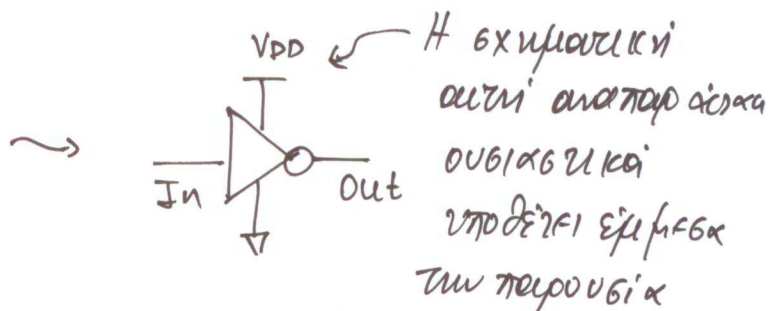 VDD
In
Out
Η σχηματική
αυτή αναπαράσταση
ουσιαστικά
υποθέτει έμμεσα
την παρουσία